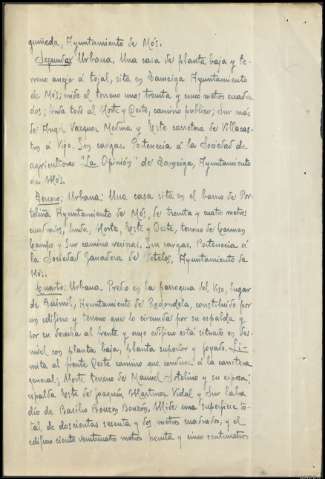 guineda, Ayuntamiento de Mos.
Segunda: Urbana. Una casa de planta baja y te-
rreno anejo a tojal, sita en Sanguiñeda Ayuntamiento
de Mos; mide el terreno unos treinta y cinco metros cuadra-
dos; linda todo al Norte y Oeste, camino publico; Sur mas
de Angel Vazquez Medina y Este carretera de Villacas-
tin a Vigo. Sin cargas. Pertenecia a la Sociedad de
agricultores "La Opinión" de Sanguiñeda, Ayuntamiento
de Mos.
Tercero: Urbana: Una casa sita en el barrio de Por-
teliña Ayuntamiento de Mos, de treinta y cuatro metros
cuadrados, linda, Norte, Este y Oeste, terreno de Carmen
Campo y Sur camino vecinal. Sin cargas. Pertenecia a
la Sociedad Ganadera de Petelos, Ayuntamiento de
Mos.
Cuarto: Urbana. Predio en la parroquia del Viso, lugar
de Ayuntamiento de Redondela, constituido por
un edificio y terreno que lo circunda por su espalda y
por su derecha al frente y cuyo edificio está situado en
con planta baja, planta superior y fayado. Li-
mita al frente Oeste camino que conduce a la carretera
general; Norte terreno de Manuel y su esposa;
espalda Este de Joaquin Martinez Vidal y Sur
de Basilio Bouzo Bouzon. Mide una superficie to-
tal de doscientos sesenta y dos metros cuadrados, y el
edificio ciento veintinueve metros treinta y cinco centimetros